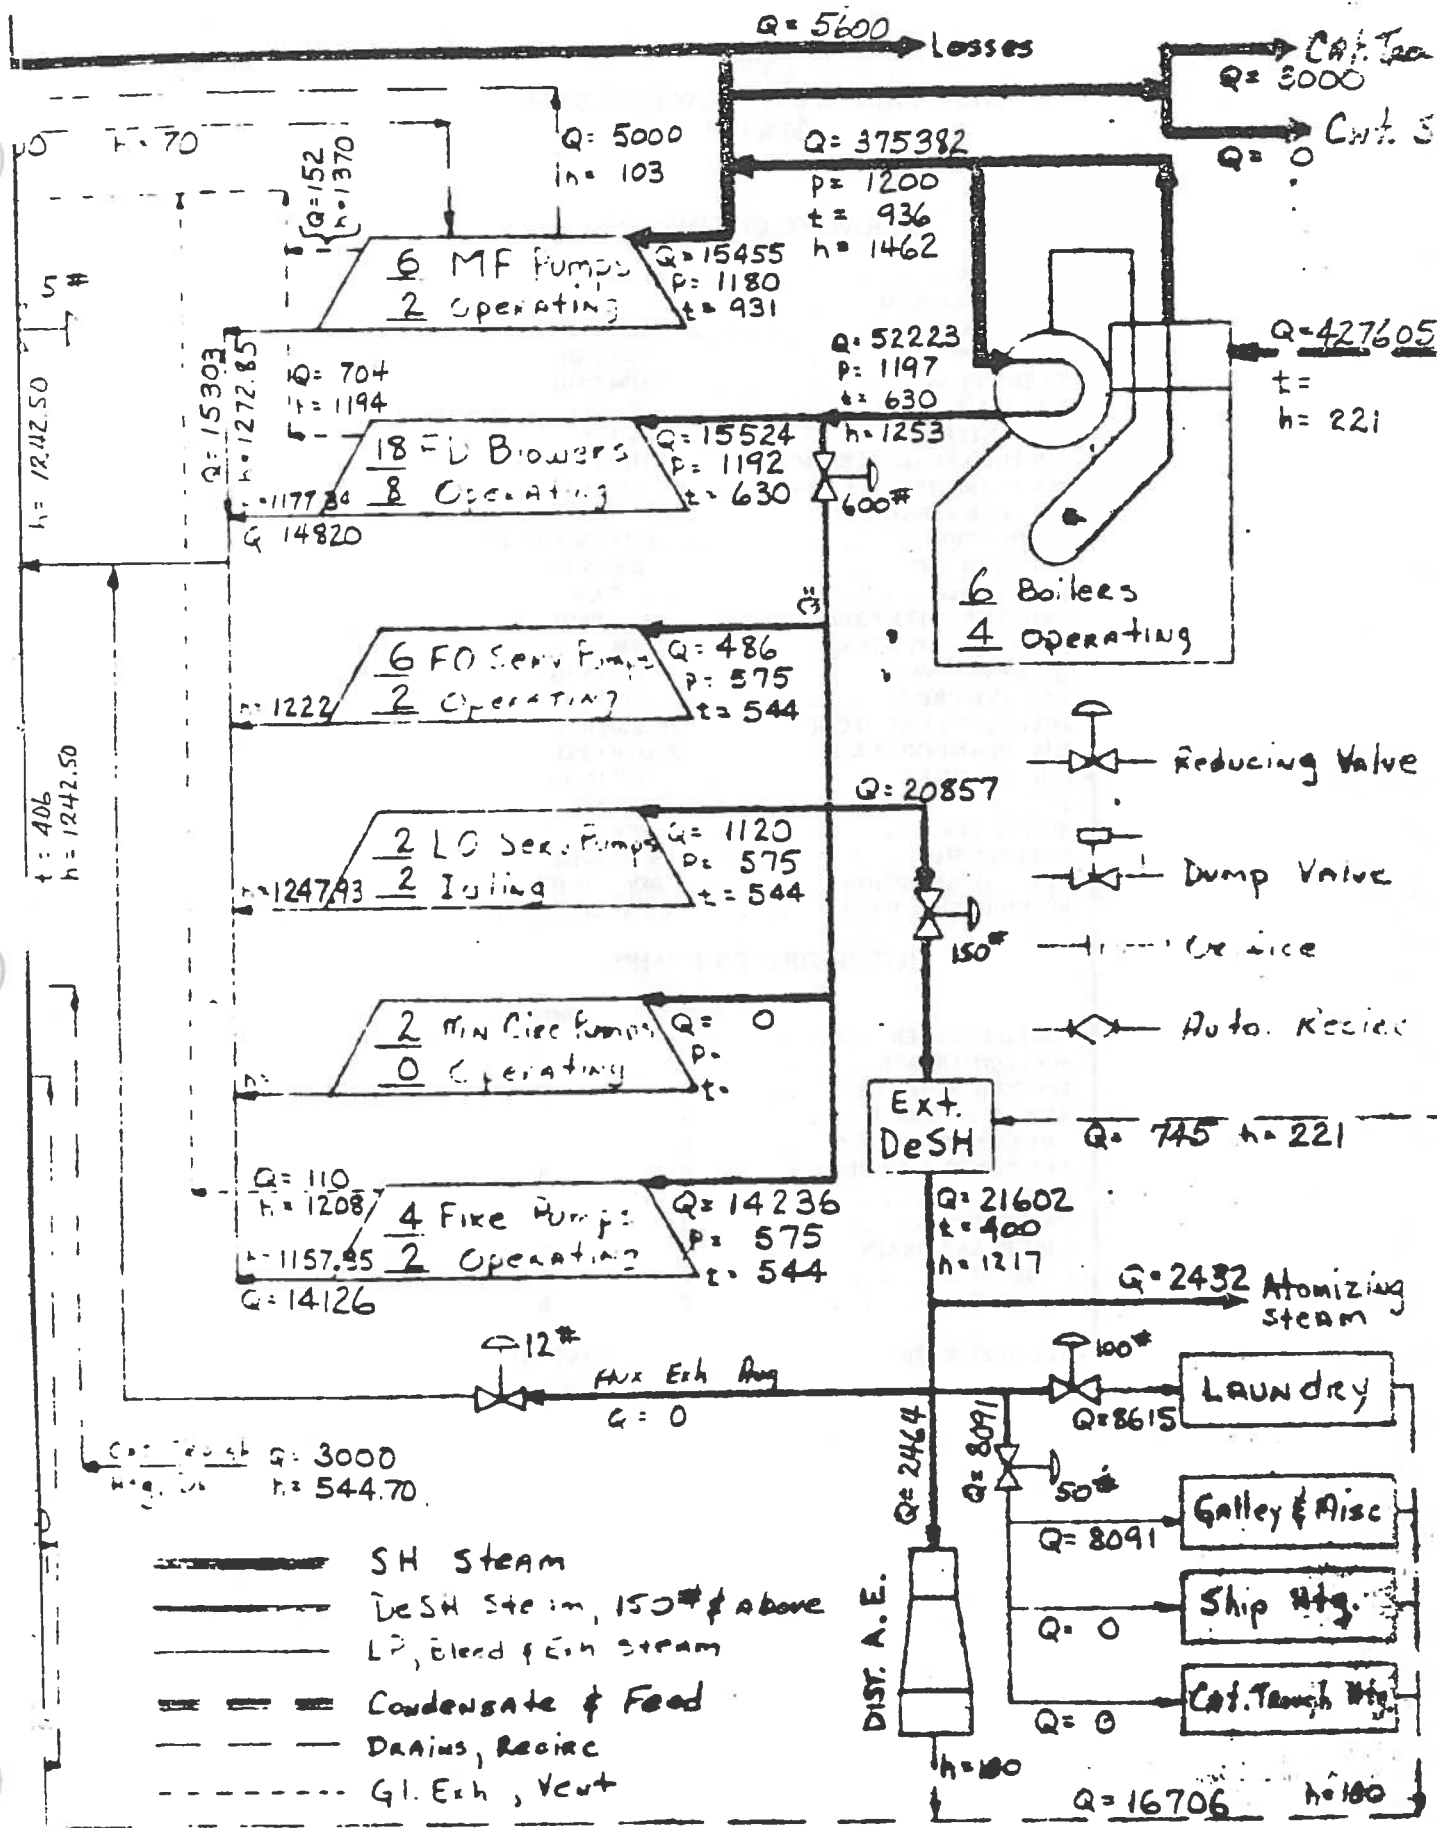 Q= 5600
Losses
Cat. Tro
Q= 3000
Cat. S
Q= 0
h= 70
Q= 152
h= 1370
Q= 5000
h= 103
Q= 375382
p= 1200
t= 936
h= 1462
6 MF Pumps
2 Operating
Q= 15455
p= 1180
t= 931
5 #
Q= 427605
t=
h= 221
Q= 52223
p= 1197
t= 630
h= 1253
Q= 15303
h= 1272.85
Q= 704
h= 1194
h= 1242.50
18 FD Blowers
8 Operating
Q= 15524
p= 1192
t= 630
600#
h= 1177.84
Q 14820
6 Boilers
4 Operating
6 FO Serv Pumps
2 Operating
Q= 486
p= 575
t= 544
h= 1222
Reducing Valve
t= 406
h= 1242.50
Q= 20857
2 LO Serv Pumps
2 Idling
Q= 1120
p= 575
t= 544
h= 1247.93
Dump Valve
150#
Orifice
Auto. Recirc
2 Mn Circ Pumps
0 Operating
Q= 0
p=
t=
h=
Ext.
DeSH
Q= 745 h= 221
Q= 110
h= 1208
4 Fire Pumps
2 Operating
Q= 14236
p= 575
t= 544
h= 1157.95
Q= 14126
Q= 21602
t= 400
h= 1217
Q= 2432 Atomizing
Steam
12#
Aux Exh Aug
Q= 0
100#
Q= 8615
LAUNDRY
Q= 2464
Q= 8091
50#
Q= 3000
h= 544.70
Q= 8091
Galley & Misc
Q= 0
Ship Htg.
Q= 0
Cat. Trough Htg
DIST. A.E.
h= 180
Q= 16706
h= 180
SH Steam
DeSH Steam, 150# & Above
LP, Bleed & Exh Steam
Condensate & Feed
Drains, Recirc
Gl. Exh, Vent